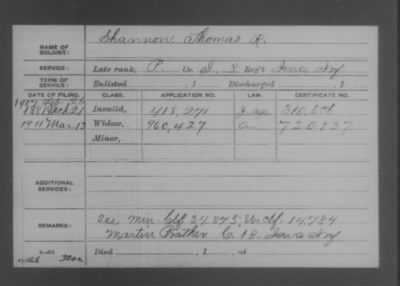 NAME OF SOLDIER: Shannon, Thomas R.
SERVICE: Late rank, P. Co. I, 8 Reg't Iowa Inf
TERM OF SERVICE: Enlisted , 1 Discharged , 1
DATE OF FILING. CLASS. APPLICATION NO. LAW. CERTIFICATE NO.
1881 Invalid, 418,271 310,
1911 Mar 13 Widow, 960,427 a 720137
Minor,
ADDITIONAL SERVICES:
REMARKS: See Min. Clf. 34875, Wd. Clf. 14,784
Martin Prather C. 18. Iowa Inf
Died , 1 , at